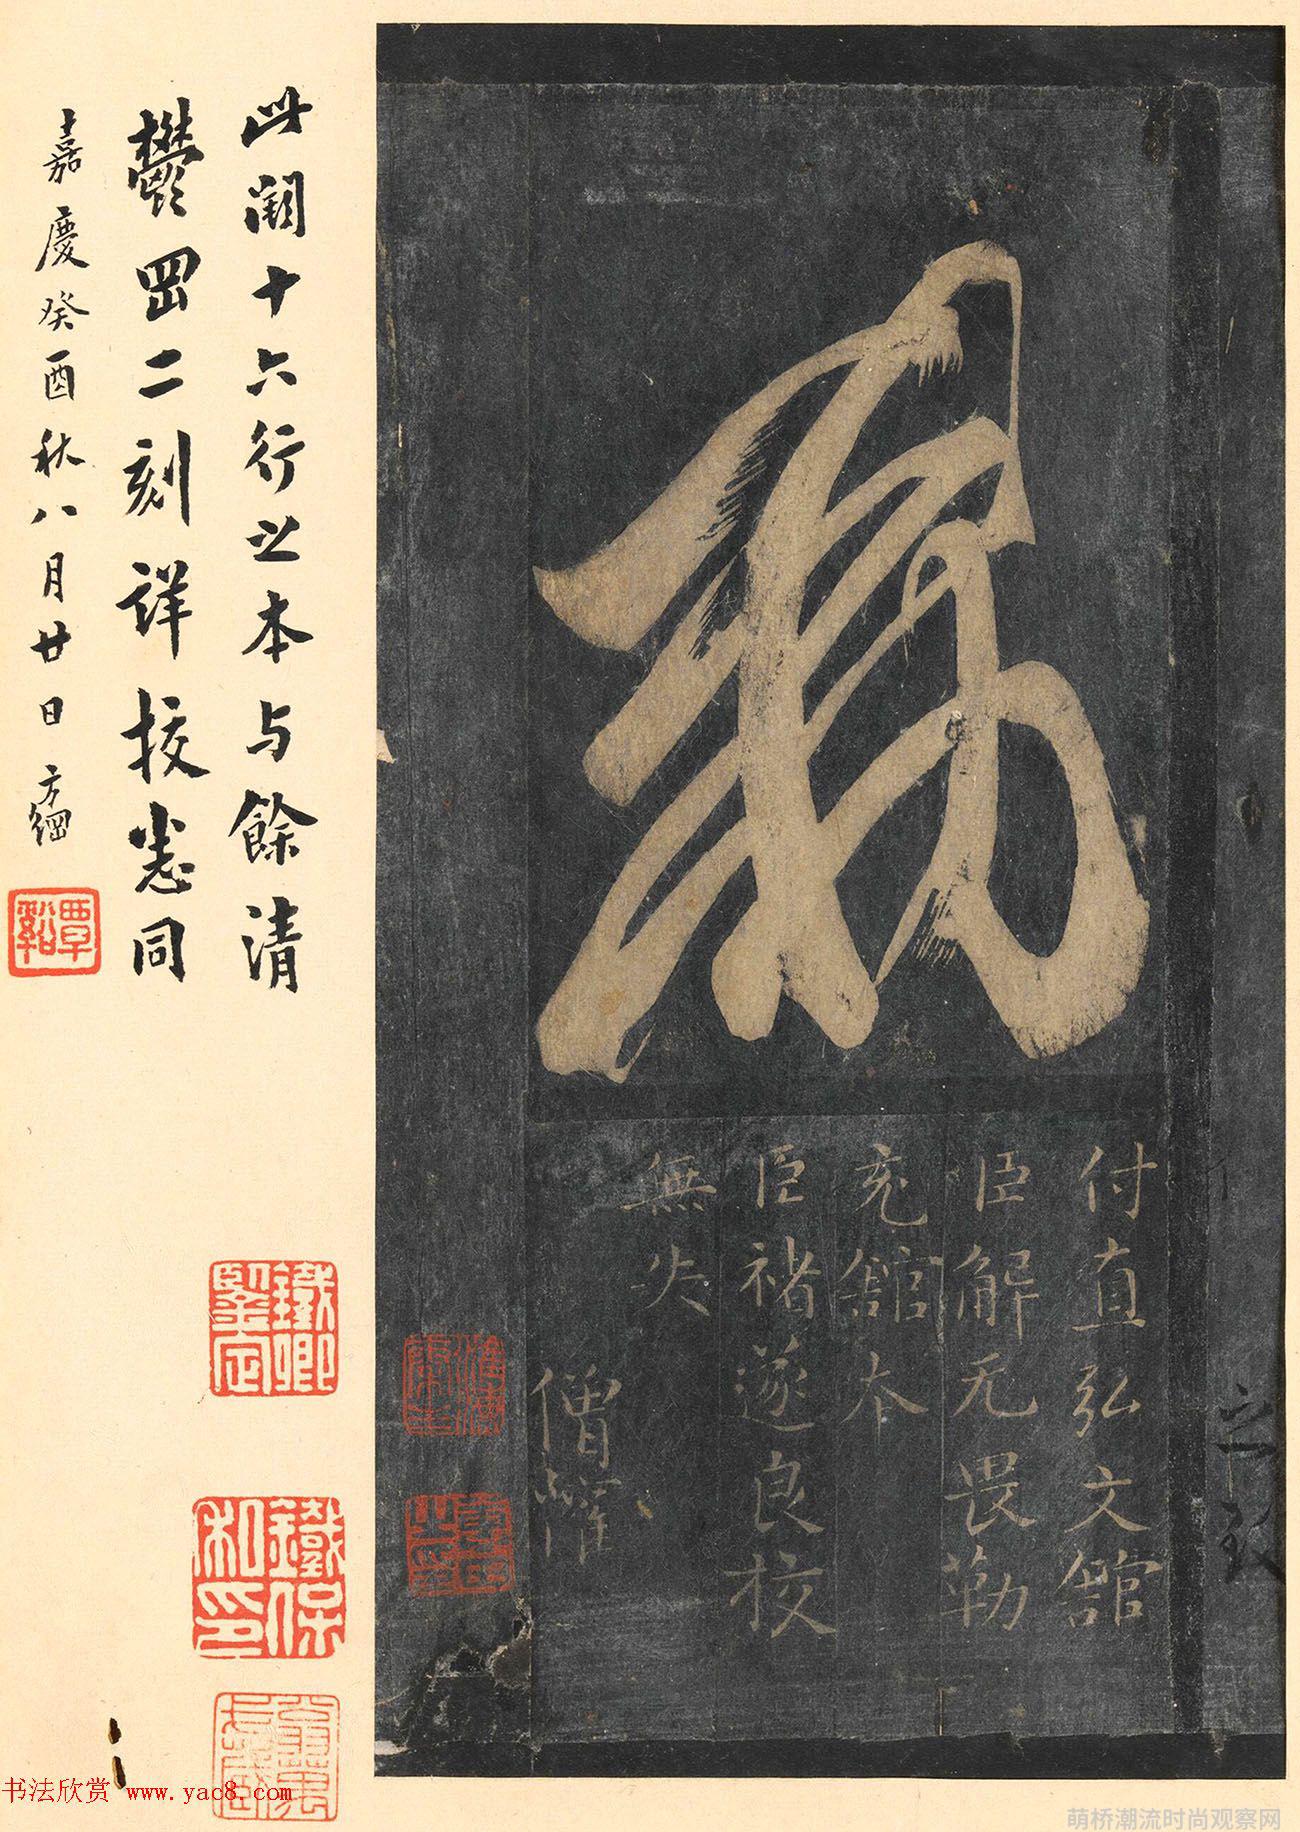 付直弘文館
臣解无畏勒
充館本
臣褚遂良校
無失
僧權
此闕十六行之本与餘清
鬱岡二刻詳挍悉同
嘉慶癸酉秋八月廿日方綱
覃谿
鐵卿鑒定
鐵保私印
书法欣赏 www.yac8.com
萌桥潮流时尚观察网